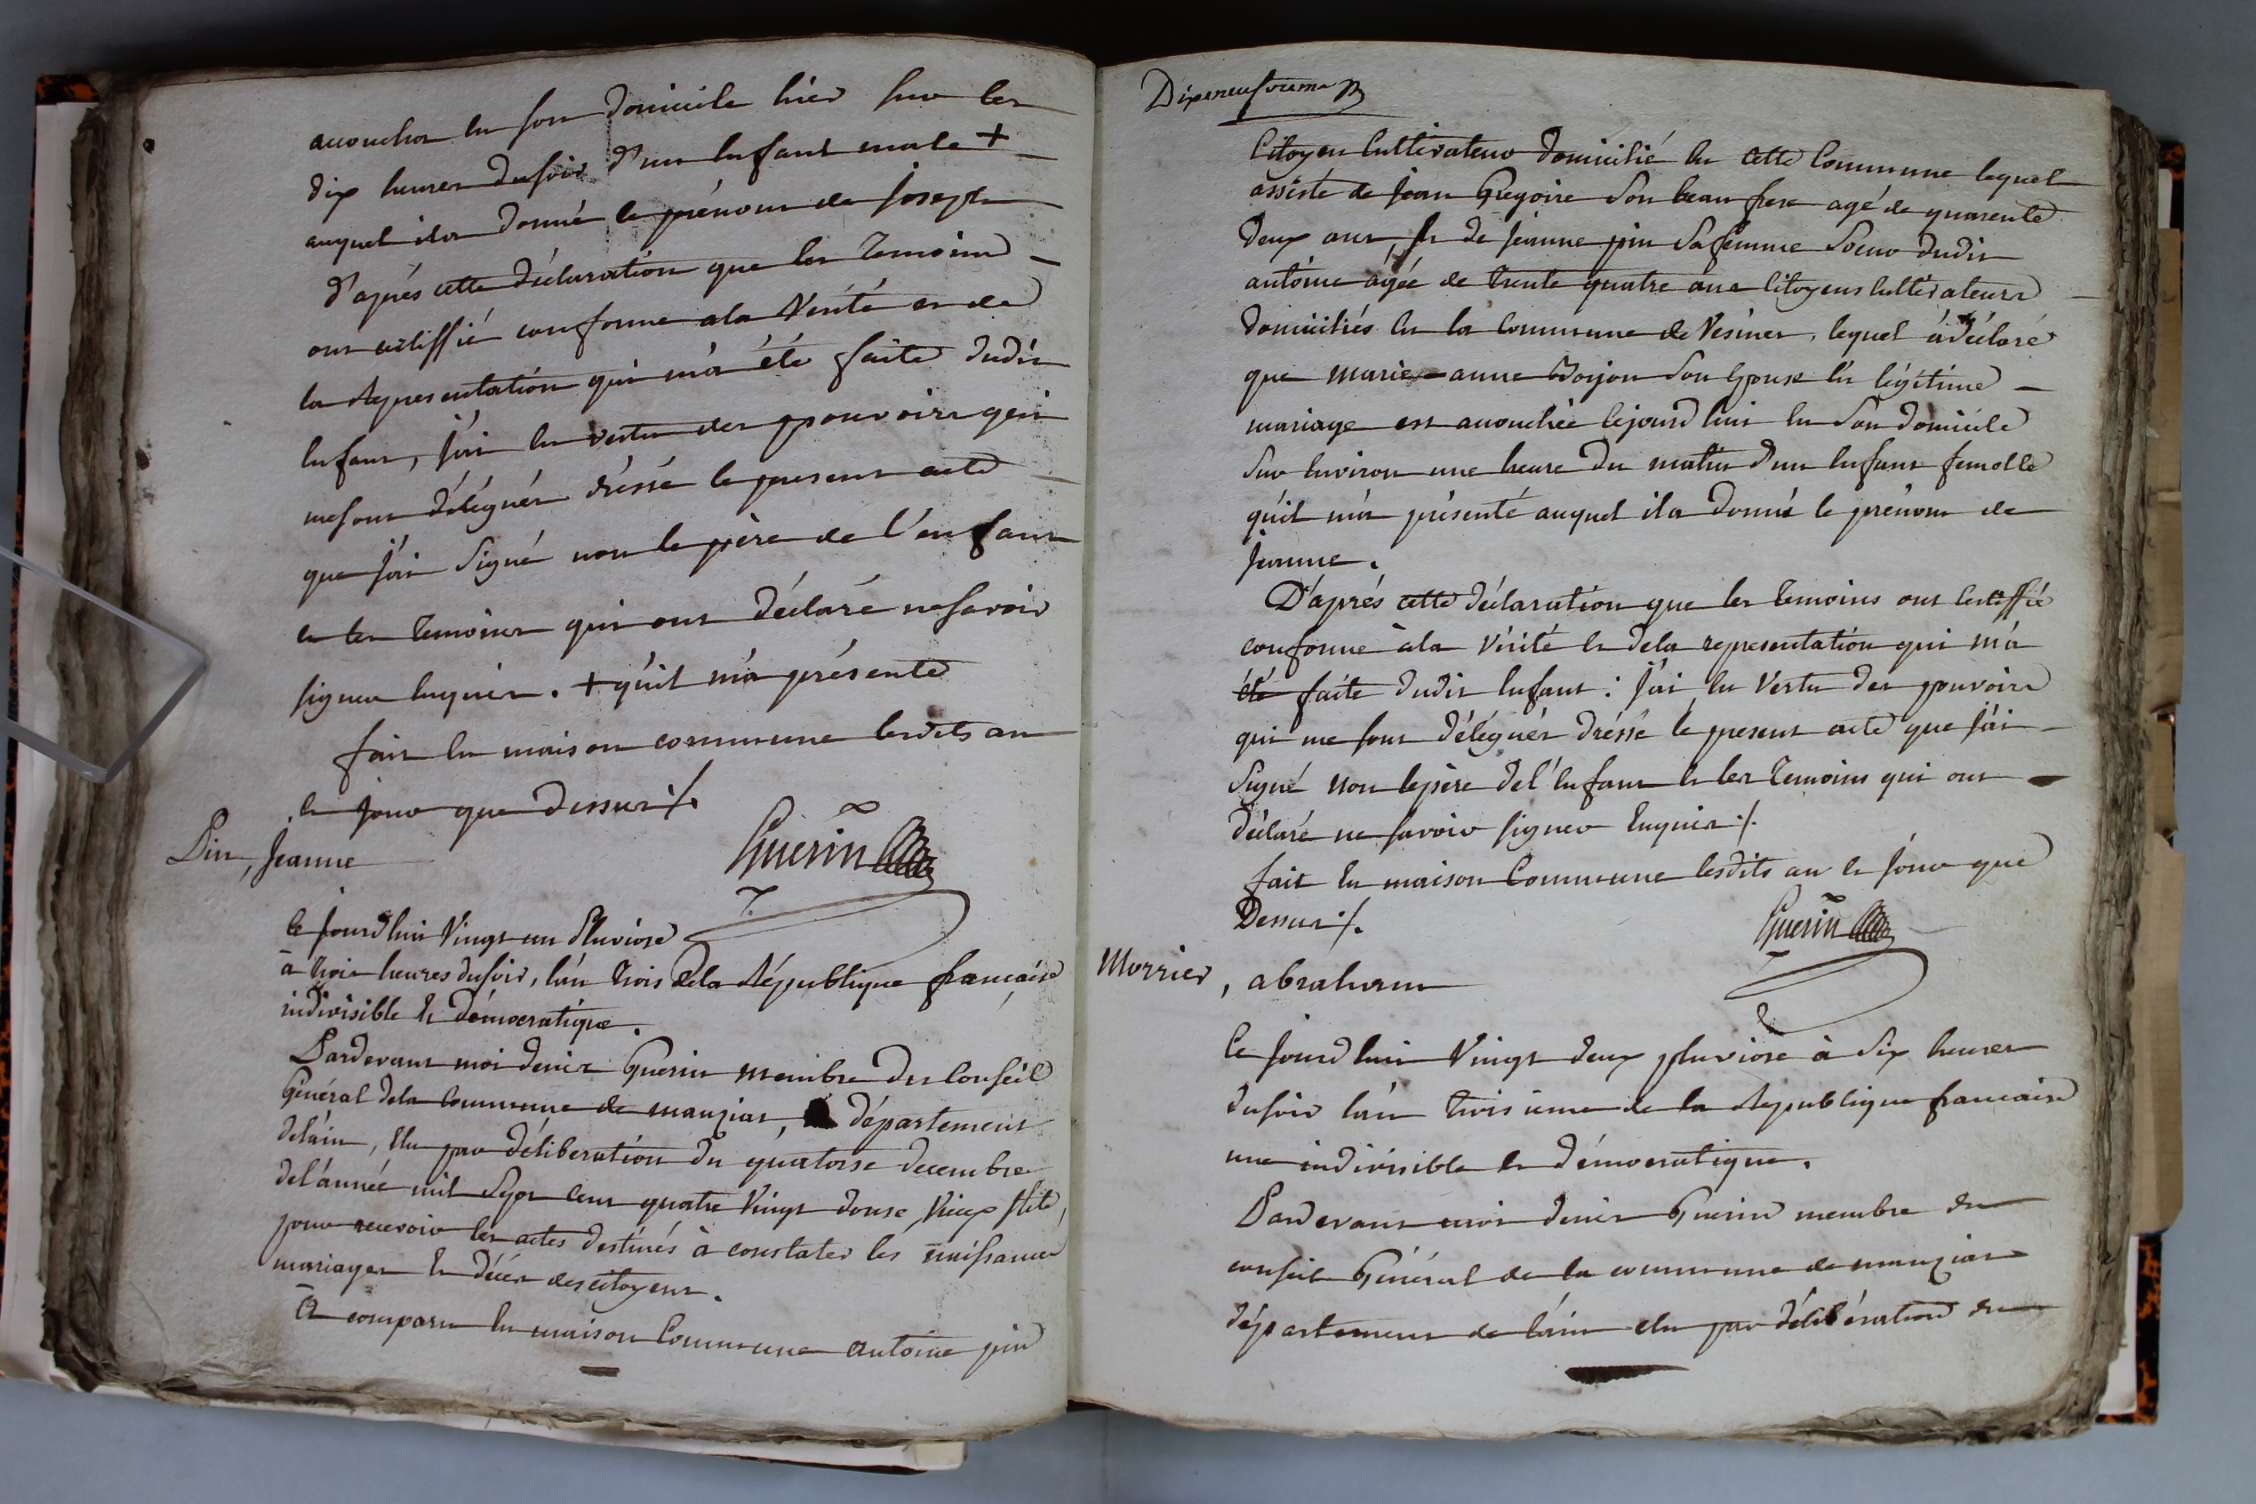 accouchée en son domicile hier sur les
dix heures du soir d'un enfant male +
auquel il a donné le prénom de joseph
d'aprés cette déclaration que les temoins
ont certiffié conforme a la vérité et de
la representation qui m'a été faite dudit
enfant, j'ai en vertu des pouvoirs qui
me sont délégués dréssé le present acte
que j'ai signé non le père de l'enfant
et les temoins qui ont déclaré ne savoir
signer enquis. + qu'il m'a présenté
fait en maison commune lesdits an
et jour que dessus ./.
Pin, Jeanne
Guerin
Ce jourd'hui vingt un Pluviose
à trois heures du soir, l'an trois de la République francaise
indivisible et démocratique.
Pardevant moi denis Guerin membre du Conseil
Général de la Commune de manziat, département
de l'ain, élu par déliberation du quatorse decembre
de l'année mil sept cent quatre vingt douse vieux stile,
pour recevoir les actes destinés à constater les naissances
mariages et décés des citoyens.
Est comparu en maison Commune antoine pin
Dixneufvieme
Citoyen Cultivateur domicilié en cette Commune lequel
assisté de jean Gregoire son beau frere agé de quarente
deux ans, et de jeanne pin sa femme soeur dudit
antoine agée de trente quatre ans Citoyens Cultivateurs
domiciliés en la Commune de Vésines, lequel à déclaré
que marie-anne Boyon son épouse en légitime
mariage est accouchée cejourd'hui en son domicile
sur environ une heure du matin d'un enfant femelle
qu'il m'a présenté auquel il a donné le prénom de
jeanne.
D'aprés cette déclaration que les temoins ont certiffié
conforme à la vérité et de la representation qui m'a
été faite dudit enfant : j'ai en vertu des pouvoirs
qui me sont délégués dréssé le present acte que j'ai
signé non le père de l'enfant et les temoins qui ont
déclaré ne savoir signer Enquis ./.
fait en maison Commune lesdits an et jour que
Dessus ./.
Guerin
Morrier, abraham
Ce jourd'hui vingt deux pluviose à six heures
du soir l'an troisieme de la Republique francaise
une indivisible et démocratique.
Pardevant moi denis Guerin membre du
conseil Général de la commune de manziat
département de l'ain élu par délibération du